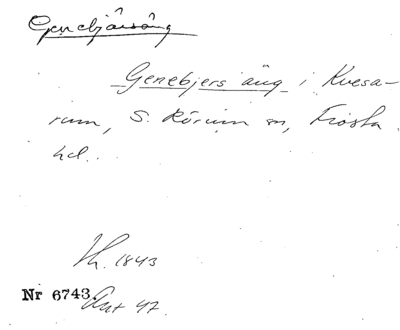 Genebjärsäng
Genebjers äng i Kvesa-
rum, S. Rörum sn, Frosta
hd.
Lh. 1843
Nr 6743. Ant 47.